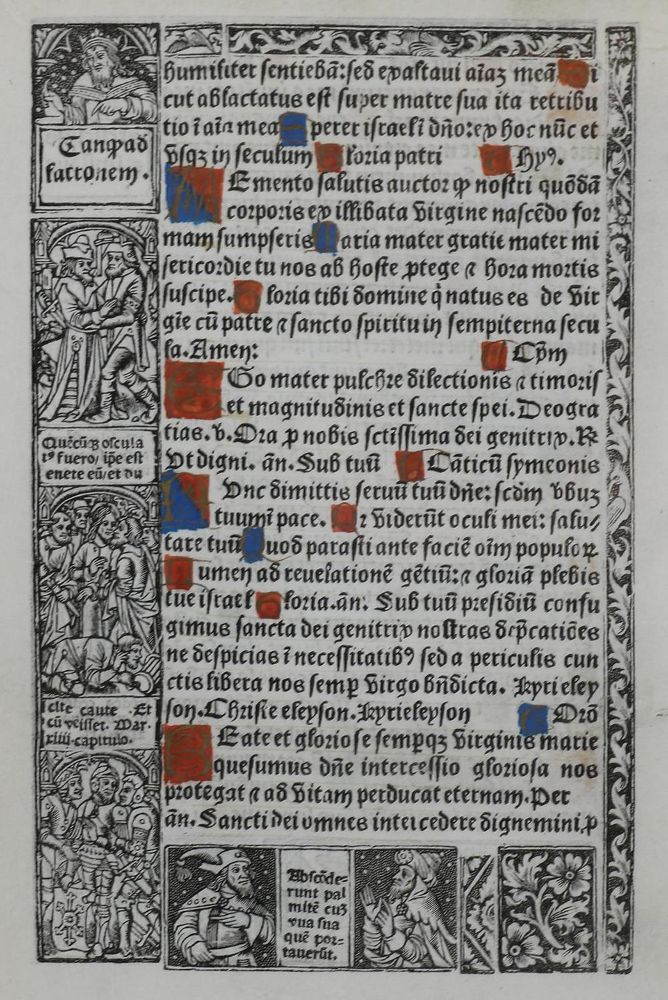 Tanq̄ʒ ad
latronem.
Quēcūqʒ oscula
tꝰ fuero/ ip̄e est
tenete eū/et du
cite caute Et
cū veisset. Mar.
xiiii.capitulo.
humiliter sentiebā:sed exaltaui aīaʒ meā Si
cut ablactatus est super matre sua ita retribu
tio ī aīa mea Sperer israel ī dño:ex hoc nūc et
vsqʒ in seculum Gloria patri Hyꝰ.
MEmento salutis auctor ꝙ nostri quōdā
corporis ex illibata virgine nascēdo for
mam sumpseris Maria mater gratie mater mi
sericordie tu nos ab hoste ꝓtege ⁊ hora mortis
suscipe. Gloria tibi domine q̇ natus es de vir
gīe cū patre ⁊ sancto spiritu in sempiterna secu
la. Amen: Cpm̄
EGo mater pulchre dilectionis ⁊ timoris
et magnitudinis et sancte spei. Deo gra
tias. v. Ora ꝓ nobis sctīssima dei genitrix. ℟
Vt digni. añ. Sub tuū Cāticū symeonis
NVnc dimittis seruū tuū dñe: scdm̄ vbuʒ
tuum ī pace. Qr viderūt oculi mei: salu⸗
tare tuū Quod parasti ante faciē oīm populoꝝ
Lumen ad reuelationē gētiū: ⁊ gloriā plebis
tue israel Gloria. añ. Sub tuū presidiū confu
gimus sancta dei genitrix nostras dep̄catiōes
ne despicias ī necessitatibꝰ sed a periculis cun
ctis libera nos semꝑ virgo bñdicta. Kyri eley
son. Christe eleyson. Kyrieleyson Orō
BEate et gloriose semꝑqʒ virginis marie
quesumus dñe intercessio gloriosa nos
protegat ⁊ ad vitam perducat eternam. Per
añ. Sancti dei omnes intercedere dignemini.ꝓ
Abscōde-
runt pal
mitē cuʒ
vua sua
quē por=
tauerūt.